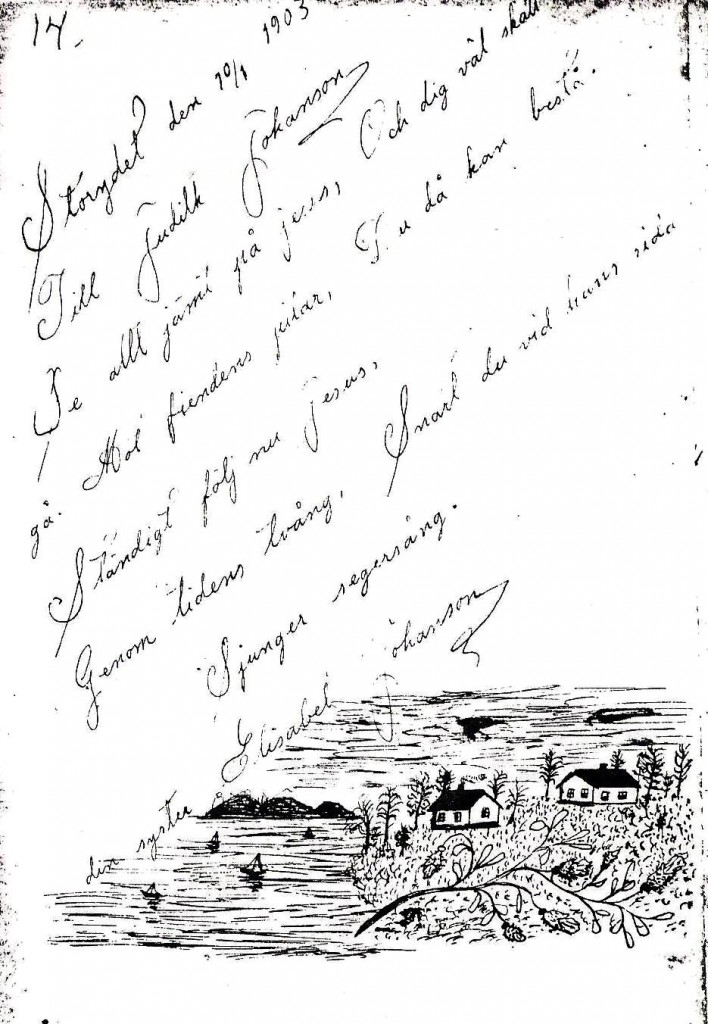 14.
Storydet den 10/1 1903
Till Judith Johanson
Se allt jämt på jesus, Och dig väl skall
gå. Mot fiendens pilar, Du då kan bestå.
Ständigt följ nu Jesus,
Genom tidens tvång, Snart du vid hans sida
Sjunger segersång.
Elisabet Johanson
din syster